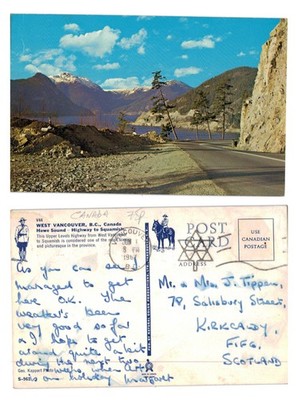 CANADA 75p
WEST VANCOUVER, B.C., Canada
Howe Sound - Highway to Squamish
This Upper Levels Highway from West Vancouver
to Squamish is considered one of the most scenic
and picturesque in the province.
POST CARD
ADDRESS
USE
CANADIAN
POSTAGE
As you can see
managed to get
here OK. The
weather's been
very good so far
so I hope to get
around quite a bit
during the next two
weeks, when
on holiday Margaret
Mr. & Mrs. J. Tippen,
78, Salisbury Street,
KIRKCALDY,
FIFE,
SCOTLAND